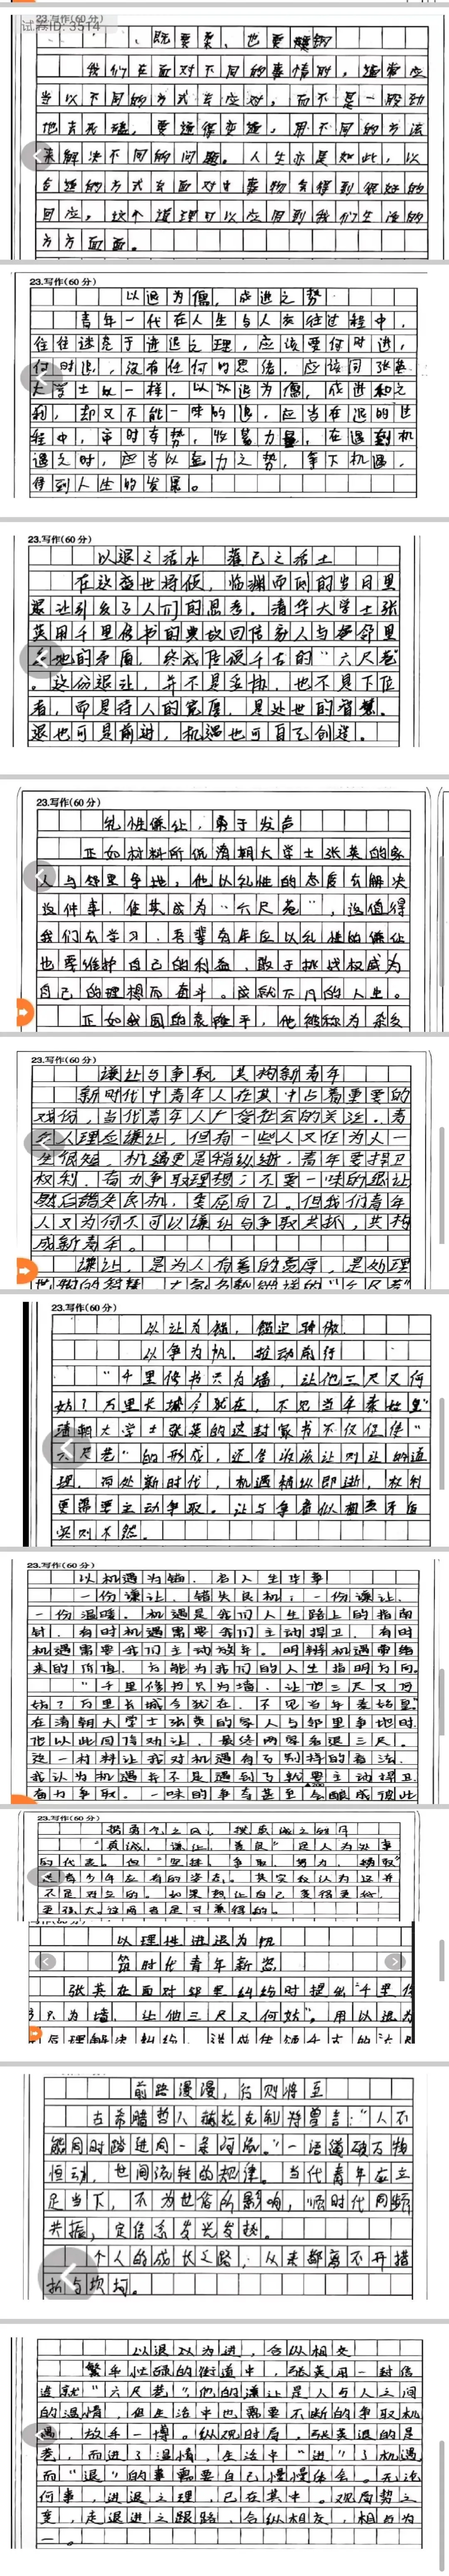 23.写作(60分)
试卷ID: 3514
既要柔，也要
我们在面对不同的事情时，通常应
当以不同的方式去应对，而不是一股劲
地，要懂得变通，用不同的方法
来解决不同的问题。人生亦是如此，以
合适的方式去面对事物会得到很好的
回应，这个道理可以应用到我们生活的
方方面面。
23.写作(60分)
以退为儒，成进之势
青年一代在人生与人友往过程中，
往往迷茫于进退之理，应该要何时进，
何时退，没有任何的思绪，应该同张英
大学士以一样，以以退为儒，成进和之
利，却又不能一味的退，应当在退的过
程中，审时夺势，收蓄力量，在遇到机
遇之时，应当以蓄力之势，争下机遇，
得到人生的发展。
23.写作(60分)
以退之活水 灌己之活土
在这盛世将倾，临渊而的岁月里
退让引发了人们的思考。清华大学士张
英用千里修书的典故回信家人与邻里
地的矛盾，终成传颂千古的“六尺巷”
。这份退让，并不是妥协，也不是下位
者，而是待人的宽厚，是处世的智慧。
退也可是前进，机遇也可自己创造。
23.写作(60分)
礼性谦让，勇于发声
正如材料所说清朝大学士张英的家
人与邻里争地，他以礼性的态度去解决
这件事，使其成为“六尺巷”，这值得
我们去学习，吾辈青年应以礼性的谦让
也要维护自己的利益，敢于挑战权威为
自己的理想而奋斗。成就不凡的人生。
正如我国的袁隆平，他被称为杂交
23.写作(60分)
谦让与争取，共构新青年
新时代中青年人在其中占着重要的
成份，当代青年人广受社会的关注。青
年人理应谦让，但有一些人又任为人一
生很短，机遇更是稍纵逝，青年要捍卫
权利，奋力争取理想；不要一味的退让
然后错失良机，委屈自己。但我们青年
人又为何不可以谦让与争取共抓，共构
成新青年。
谦让，是为人有善的宽厚，是处理
世物的智慧，大家名熟能详的“六尺巷”
23.写作(60分)
以让为锚，锚定骄傲
以争为帆，拉动前行
“千里修书只为墙，让他三尺又何
妨？万里长城今就在，不见当年秦始皇”
清朝大学士张英的这封家书不仅促使“
六尺巷”的形成，还告诉该让则让的道
理，而处新时代，机遇稍纵即逝，权利
更需要主动争取。让与争看似相互矛盾
实则不然。
23.写作(60分)
以机遇为锚，启人生华章
一份谦让，错失良机；一份谦让，
一份温暖。机遇是我们人生路上的指南
针，有时机遇需要我们主动捍卫，有时
机遇需要我们主动放弃。明辨机遇带给
来的价值，方能为我们的人生指明方向。
“千里修书只为墙，让他三尺又何
妨？万里长城今犹在，不见当年秦始皇”
在清朝大学士张英的家人与邻里争地时
他以此回信劝让，最终两家各退三尺。
这一材料让我对机遇有了别样的看法，
我认为机遇并不是遇到了就要主动捍卫
奋力争取。一味的争夺甚至会酿成彼此
23.写作(60分)
“真诚、谦让、善良”是人为处事
的代表。但“坚持、争取、努力、
是青少年应有的姿态。其实我认为这并
不是对立的。如果想让自己变得更好，
更强大。这两者是可兼得的。
以理性进退为帆
筑时代青年新姿
张英在面对邻里纠纷时提出“千里修
书只为墙，让他三尺又何妨”。用以退为
前路漫漫，行则将至
古希腊哲人赫拉克利特曾言：“人不
能同时踏进同一条河流。”一语道破万物
恒动，世间流转的规律。当代青年应立
足当下，不为世俗所影响，顺时代同频
共振，定信念发光发热。
个人的成长之路，从来都离不开措
折与坎坷。
以退以为进，合纵相交
繁华忙碌的街道中，张英用一封信
造就“六尺巷”，他的谦让是人与人之间
的温情，但生活中也需要不断的争取机
遇，放手一博。纵观时局，张英退的是
巷，而进了温情，生活中“进”了机遇
而“退”的事需要自己慢慢体会。无论
何事，进退之理，已在其中。观局势之
变，走退进之跟踏，合纵相交，相互为
一。